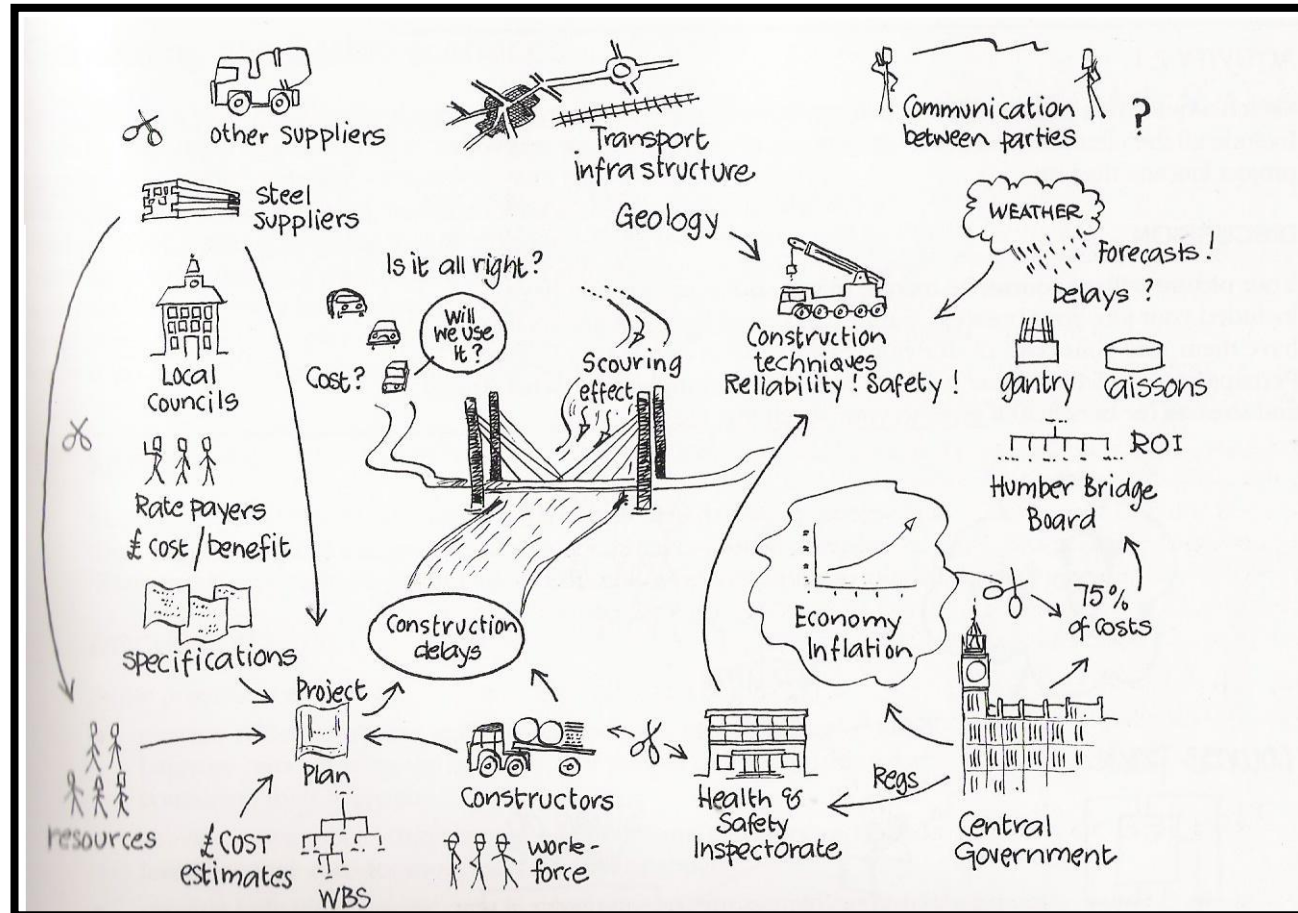 other suppliers
Steel
Suppliers
Transport
infrastructure
Geology
Communication
between parties
?
WEATHER
Forecasts!
Delays?
Is it all right?
Will
we use
It?
Cost?
Scouring
effect
Construction
techniques
Reliability! Safety!
gantry
Caissons
ROI
Humber Bridge
Board
Local
Councils
Rate payers
£ cost/benefit
specifications
Construction
delays
Economy
Inflation
75%
of costs
Project
Plan
resources
£ COST
estimates
WBS
Constructors
work-
force
Health &
Safety
Inspectorate
Regs
Central
Government